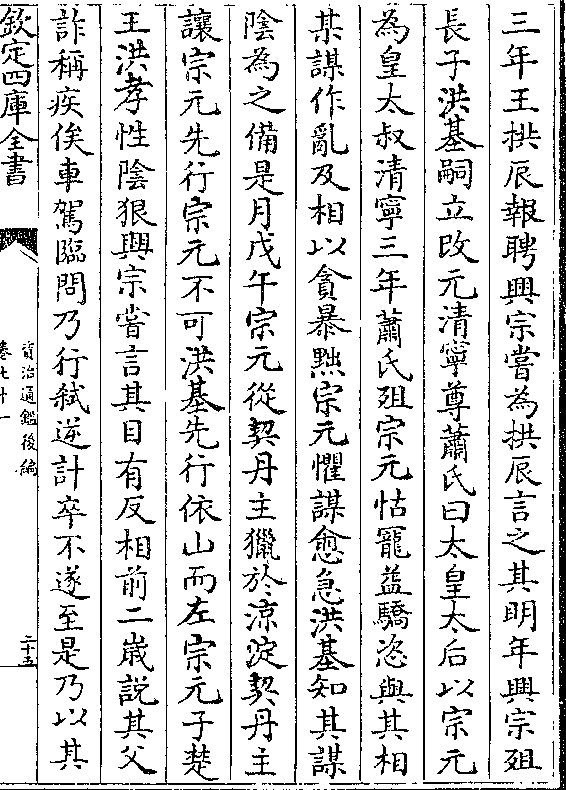 三年王拱辰報聘興宗嘗為拱辰言之其明年興宗殂
長子洪基嗣立改元清寧尊蕭氏曰太皇太后以宗元
為皇太叔清寧三年蕭氏殂宗元怙寵益驕恣與其相
某謀作亂及相以貪暴黜宗元懼謀愈急洪基知其謀
陰為之備是月戊午宗元從契丹主獵於涼淀契丹主
讓宗元先行宗元不可洪基先行依山而左宗元子楚
王洪孝性陰狠興宗嘗言其目有反相前二嵗說其父
詐稱疾俟車駕臨問乃行弑逆計卒不遂至是乃以其
欽定四庫全書
資治通鑑後編
卷七十一
二十五